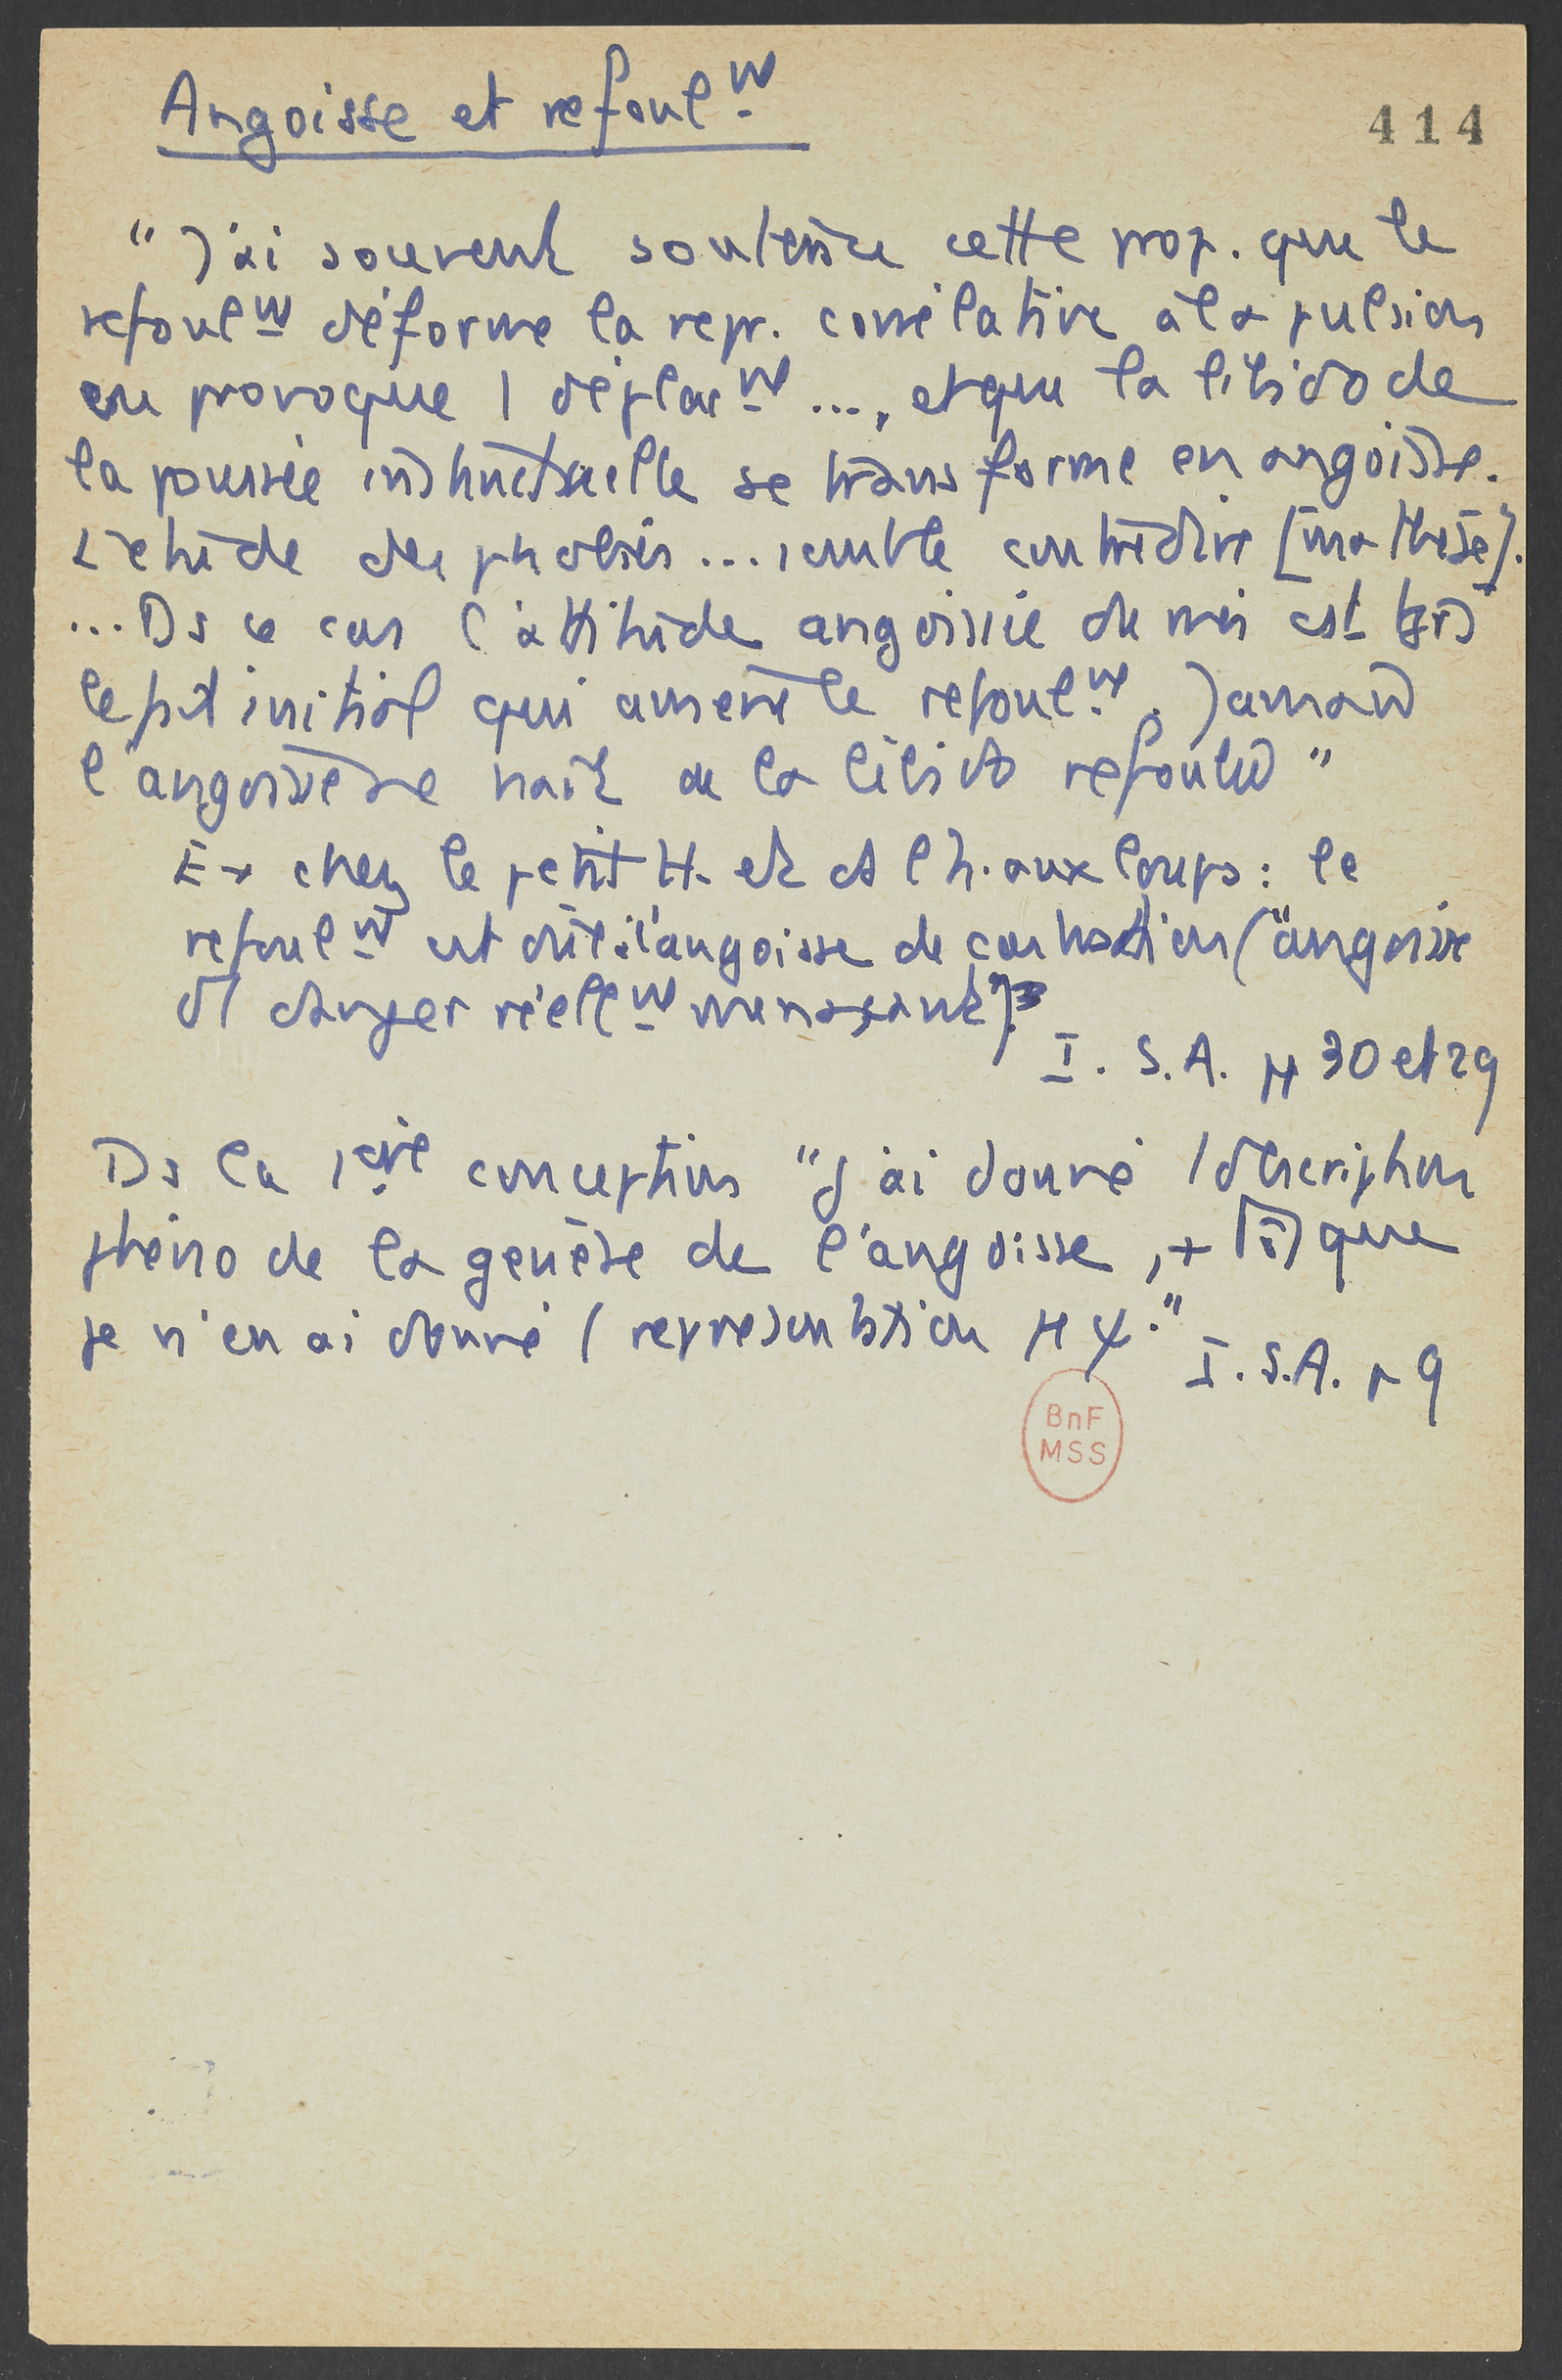 Angoisse et refoult
414
"J'ai souvent soutenu cette prop. que le
refoult déforme la repr. corrélative à la pulsion
en provoque 1 déplact ..., et que la libido de
la poussée instinctuelle se transforme en angoisse.
L'étude des phobies ... semble contredire [ma thèse].
... Ds ce cas l'attitude angoissée du moi est tjs
le fait initial qui amène le refoult. Jamais
l'angoisse ne naît de la libido refoulée"
Ex chez le petit H. et ds l'h. aux loups : le
refoult est dû à l'angoisse de castration ("angoisse
d'1 danger réellt menaçant").
I. S. A. p 30 et 29
Ds la 1ère conception "J'ai donné 1 description
phéno de la genèse de l'angoisse, + que
je n'en ai donné 1 représentation Mψ."
I. S.A. p 9
BnF
MSS